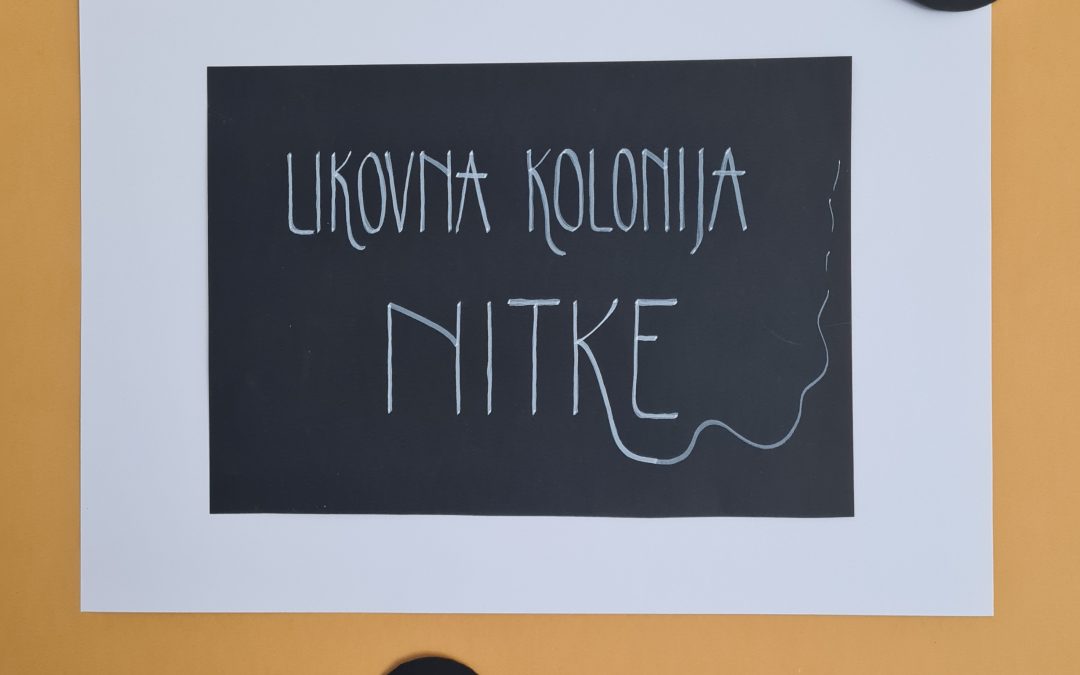 LIKOVNA KOLONIJA
NITKE